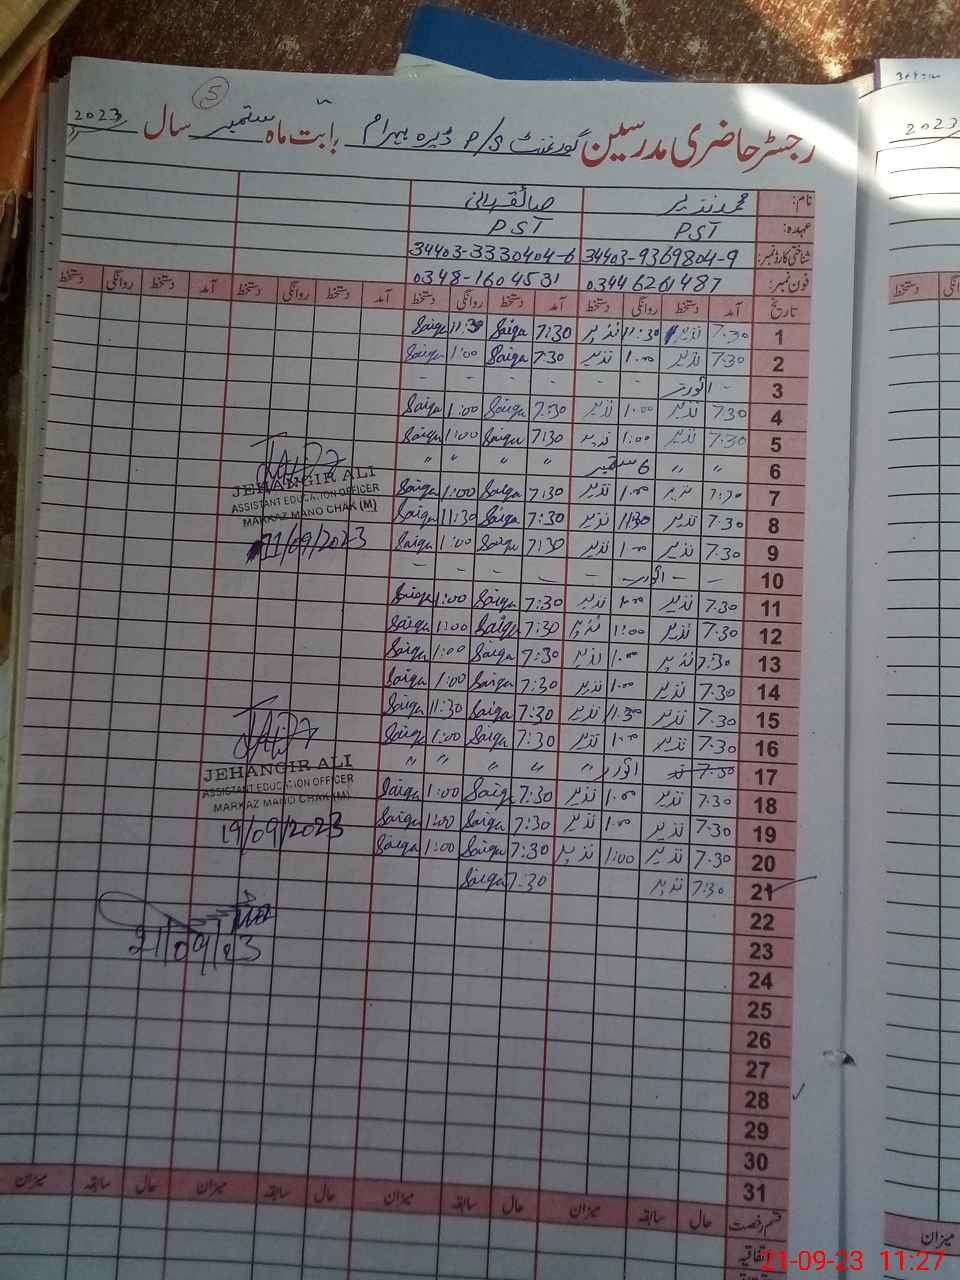 5
رجسٹر حاضری مدرسین گورنمنٹ P/S ڈیرہ بہرام بابت ماہ ستمبر سال 2023
نام: محمد نذیر
عہدہ: PST PST
شناختی کارڈ نمبر: 34403-9369804-9 34403-3330404-6
فون نمبر: 0344 6261487 0348-1604531
تاریخ آمد دستخط روانگی دستخط آمد دستخط روانگی دستخط آمد دستخط روانگی دستخط آمد دستخط روانگی دستخط
1 7:30 نذیر 11:30 نذیر 7:30 Saiqa 11:30 Saiqa
2 7:30 نذیر 1:00 نذیر 7:30 Saiqa 1:00 Saiqa
3 - اتوار - - - - -
4 7:30 نذیر 1:00 نذیر 7:30 Saiqa 1:00 Saiqa
5 7:30 نذیر 1:00 نذیر 7:30 Saiqa 1:00 Saiqa
6 " " 6 ستمبر " " " "
7 7:30 نذیر 1:00 نذیر 7:30 Saiqa 1:00 Saiqa
8 7:30 نذیر 11:30 نذیر 7:30 Saiqa 11:30 Saiqa
9 7:30 نذیر 1:00 نذیر 7:30 Saiqa 1:00 Saiqa
10 - - اتوار - - - - -
11 7:30 نذیر 1:00 نذیر 7:30 Saiqa 1:00 Saiqa
12 7:30 نذیر 1:00 نذیر 7:30 Saiqa 1:00 Saiqa
13 7:30 نذیر 1:00 نذیر 7:30 Saiqa 1:00 Saiqa
14 7:30 نذیر 1:00 نذیر 7:30 Saiqa 1:00 Saiqa
15 7:30 نذیر 11:30 نذیر 7:30 Saiqa 11:30 Saiqa
16 7:30 نذیر 1:00 نذیر 7:30 Saiqa 1:00 Saiqa
17 7:30 اتوار " " " " "
18 7:30 نذیر 1:00 نذیر 7:30 Saiqa 1:00 Saiqa
19 7:30 نذیر 1:00 نذیر 7:30 Saiqa 1:00 Saiqa
20 7:30 نذیر 1:00 نذیر 7:30 Saiqa 1:00 Saiqa
21 7:30 نذیر 7:30 Saiqa
22
23
24
25
26
27
28
29
30
31
JEHANGIR ALI
ASSISTANT EDUCATION OFFICER
MARKAZ MANO CHAK (M)
11/09/2023
JEHANGIR ALI
ASSISTANT EDUCATION OFFICER
MARKAZ MANO CHAK (M)
19/09/2023
21/09/23
قسم رخصت حال سابقہ میزان حال سابقہ میزان حال سابقہ میزان حال سابقہ میزان
اتفاقیہ
2023
دستخط
میزان
21-09-23 11:27